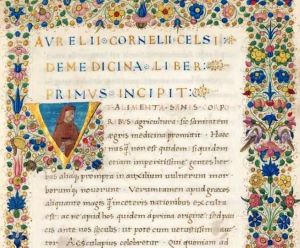 AVRELII CORNELII CELSI
DE MEDICINA LIBER:
PRIMVS INCIPIT:
VT ALIMENTA SANIS CORPO
RIBVS agricultura: sic sanitatem
aegris medicina promittit. Haec
nusq non est quidem: siquidem
etiam imperitissime gentes her
bas aliaq prompta in auxilium uulnerum mor
borumq nouerunt. Verumtamen apud graecos
aliquanto magis q in ceteris nationibus exculta
est. ac ne apud hos quidem a prima origine: sed pau
cis ante nos seculis. ut pote cum uetustissimus
Aesculapius celebretur. Qui quoniam ad